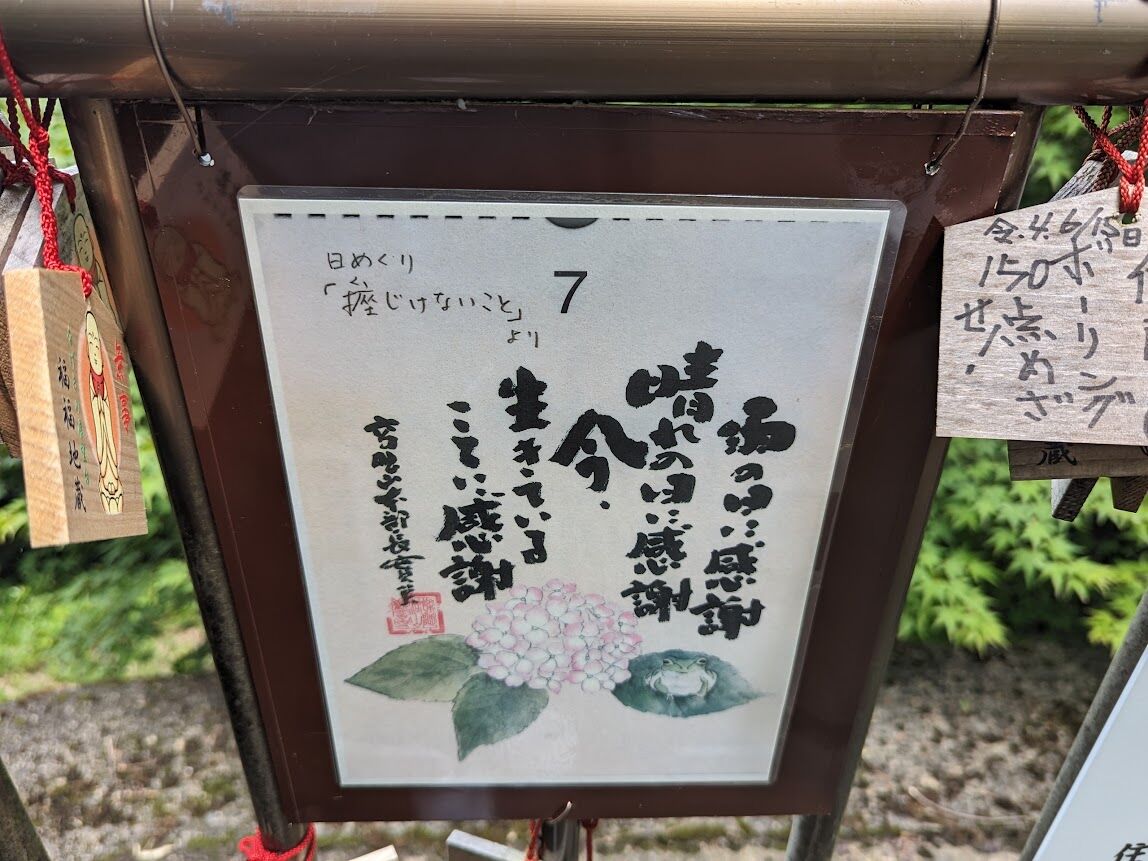 日めくり
く
「挫じけないこと」
より
7
雨の日に感謝
晴れの日に感謝
今、
生きている
ことに感謝
福福地蔵
令.4.6/15日
ボーリング
150点めざ
せ!
蔵